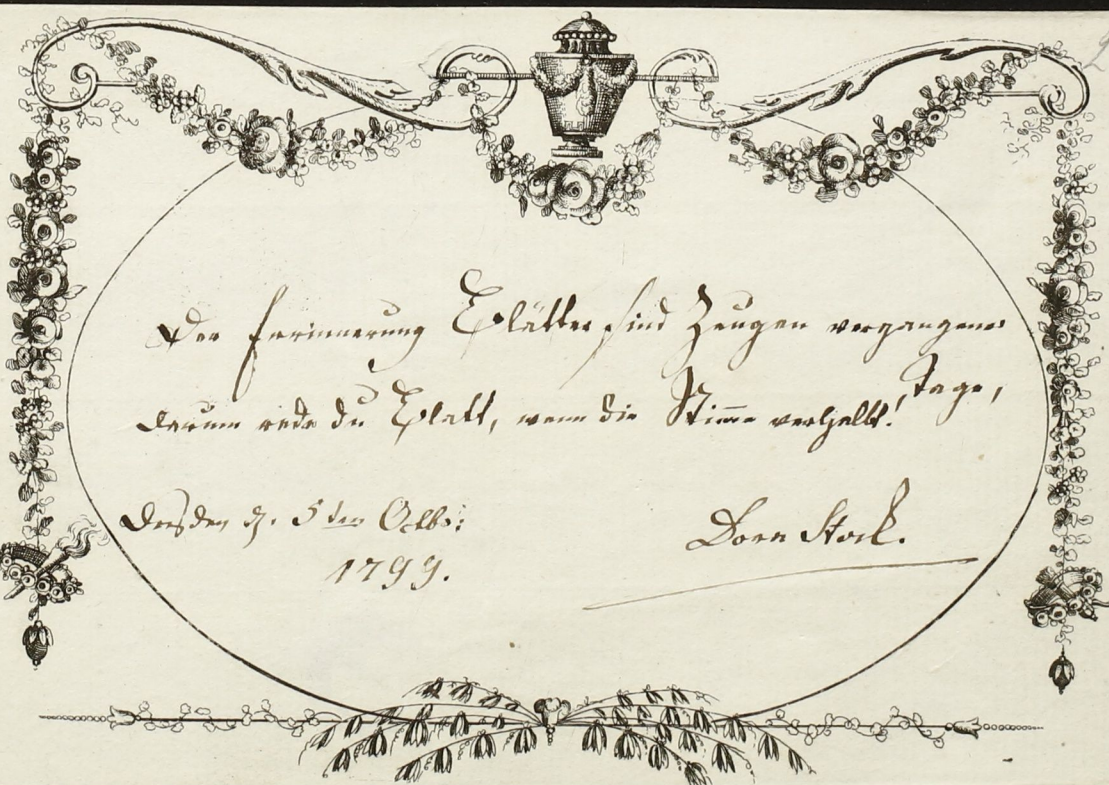 Der Erinnerung Blätter sind Zeugen vergangener
Tage,
darum rede du Blatt, wenn die Stim̅e verhallt!
Dresden d. 5ten Octb:
1799.
Dora Stock.